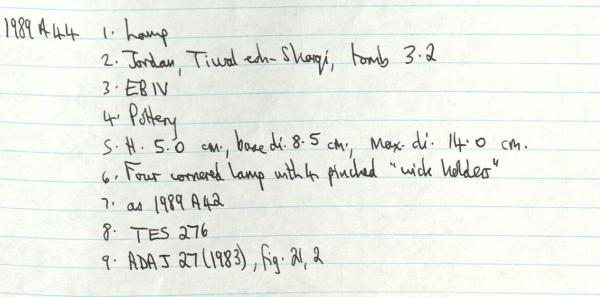 1989 A44 1. Lamp
2. Jordan, Tiwal esh-Sharqi, tomb 3.2
3. EBIV
4. Pottery
5. H. 5.0 cm., base di. 8.5 cm., Max. di. 14.0 cm.
6. Four cornered lamp with 4 pinched "wick holders"
7. as 1989 A42
8. TES 276
9. ADAJ 27 (1983), fig. 21, 2